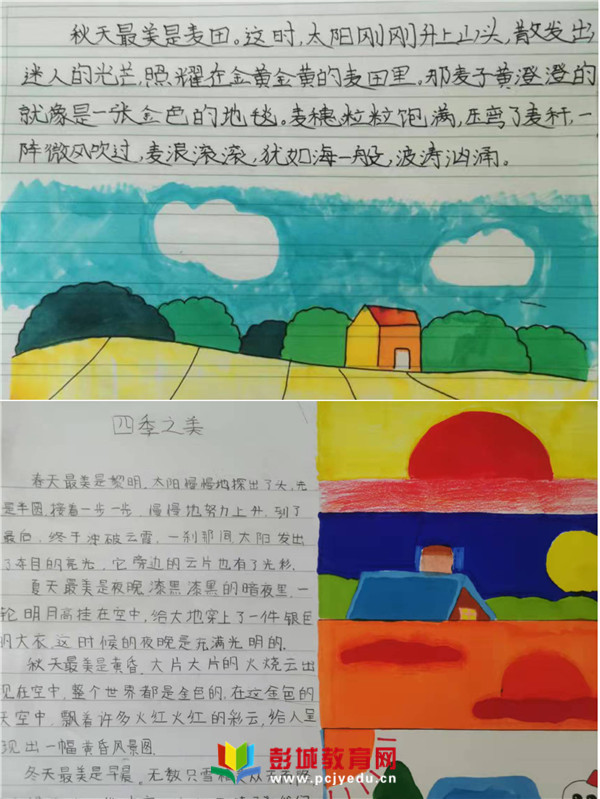 秋天最美是麦田。这时,太阳刚刚升上山头,散发出
迷人的光芒,照耀在金黄金黄的麦田里。那麦子黄澄澄的
就像是一张金色的地毯。麦穗粒粒饱满,压弯了麦秆,一
阵微风吹过,麦浪滚滚,犹如海一般,波涛汹涌。
四季之美
春天最美是黎明。太阳慢慢地探出了头,先
是半圆,接着一步一步,慢慢地努力上升,到了
最后,终于冲破云霄,一刹那间太阳发出
了夺目的亮光,它旁边的云片也有了光彩。
夏天最美是夜晚,漆黑漆黑的暗夜里,一
轮明月高挂在空中,给大地穿上了一件银色
的大衣,这时候的夜晚是充满光明的。
秋天最美是黄昏,大片大片的火烧云出
现在空中,整个世界都是金色的,在这金色的
天空中,飘着许多火红火红的彩云,给人呈
现出一幅黄昏风景图.
冬天最美是早晨。无数只雪
彭城教育网
www.pcjyedu.cn